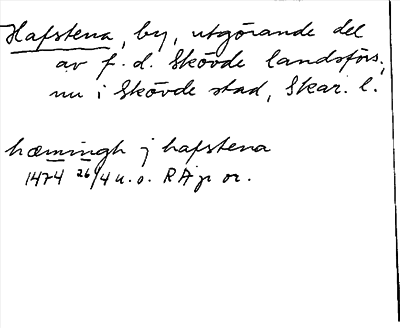 Hafstena, by, utgörande del
av f. d. Skövde landsförs.,
nu i Skövde stad, Skar. l.
hæmingh j hafstena
1474 26/4 u. o. RAp or.